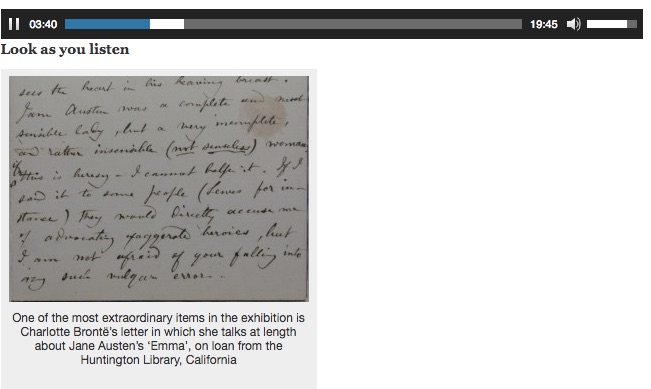 03:40
19:45
Look as you listen
sees the heart in his heaving breast.
Jane Austen was a complete and most
sensible lady, but a very incomplete,
and rather insensible (not senseless) woman
if this is heresy - I cannot help it. If I
said it to some people (Lewes for in-
stance) they would directly accuse me
of advocating exaggerated heroics, but
I am not afraid of your falling into
any such vulgar error.
One of the most extraordinary items in the exhibition is
Charlotte Brontë's letter in which she talks at length
about Jane Austen's 'Emma', on loan from the
Huntington Library, California